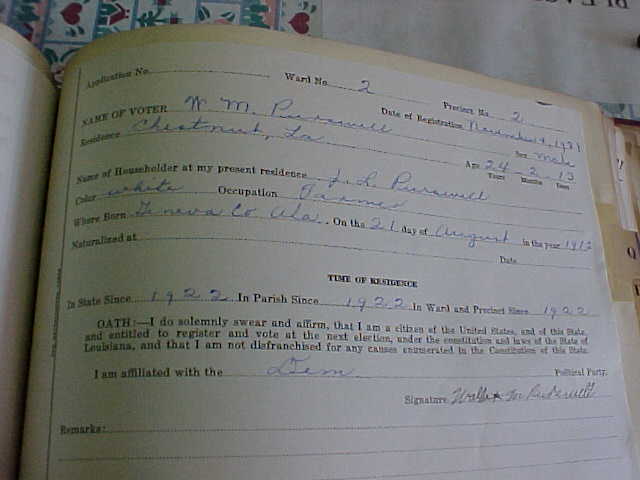 Application No. Ward No. 2 Precinct No. 2
NAME OF VOTER W. M. Purswell Date of Registration November 4, 19
Residence Chestnut, La Sex male
Age 24 - 2 - 13
Years Months Days
Name of Householder at my present residence J. L. Purswell
Color white Occupation Farmer
Where Born Geneva Co Ala. On the 21 day of August in the year 1912
Naturalized at Date
TIME OF RESIDENCE
In State Since 1922 In Parish Since 1922 In Ward and Precinct Since 1922
OATH:—I do solemnly swear and affirm, that I am a citizen of the United States, and of this State,
and entitled to register and vote at the next election, under the constitution and laws of the State of
Louisiana, and that I am not disfranchised for any causes enumerated in the Constitution of this State.
I am affiliated with the Dem Political Party.
Signature Walter M Purswell
Remarks: